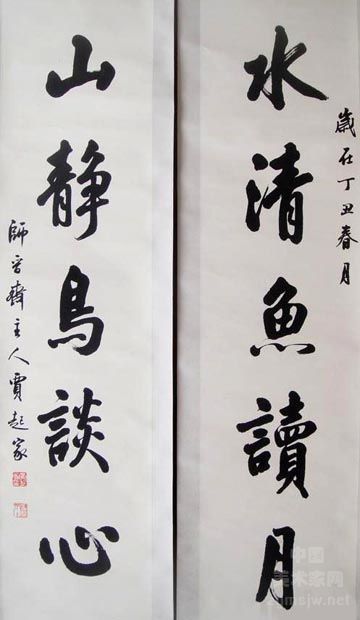 歲在丁丑春月
水清魚讀月
山靜鳥談心
師晉齋主人賈起家
中国
美术家网
msjw.net